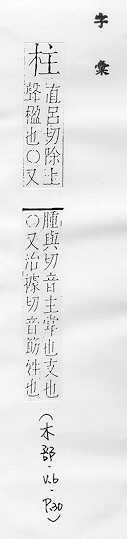 字彙
柱
直呂切除上
聲楹也〇又
腫與切音主䇠也支也
〇又治據切音筯仵也
(木部-V.6-P.30)